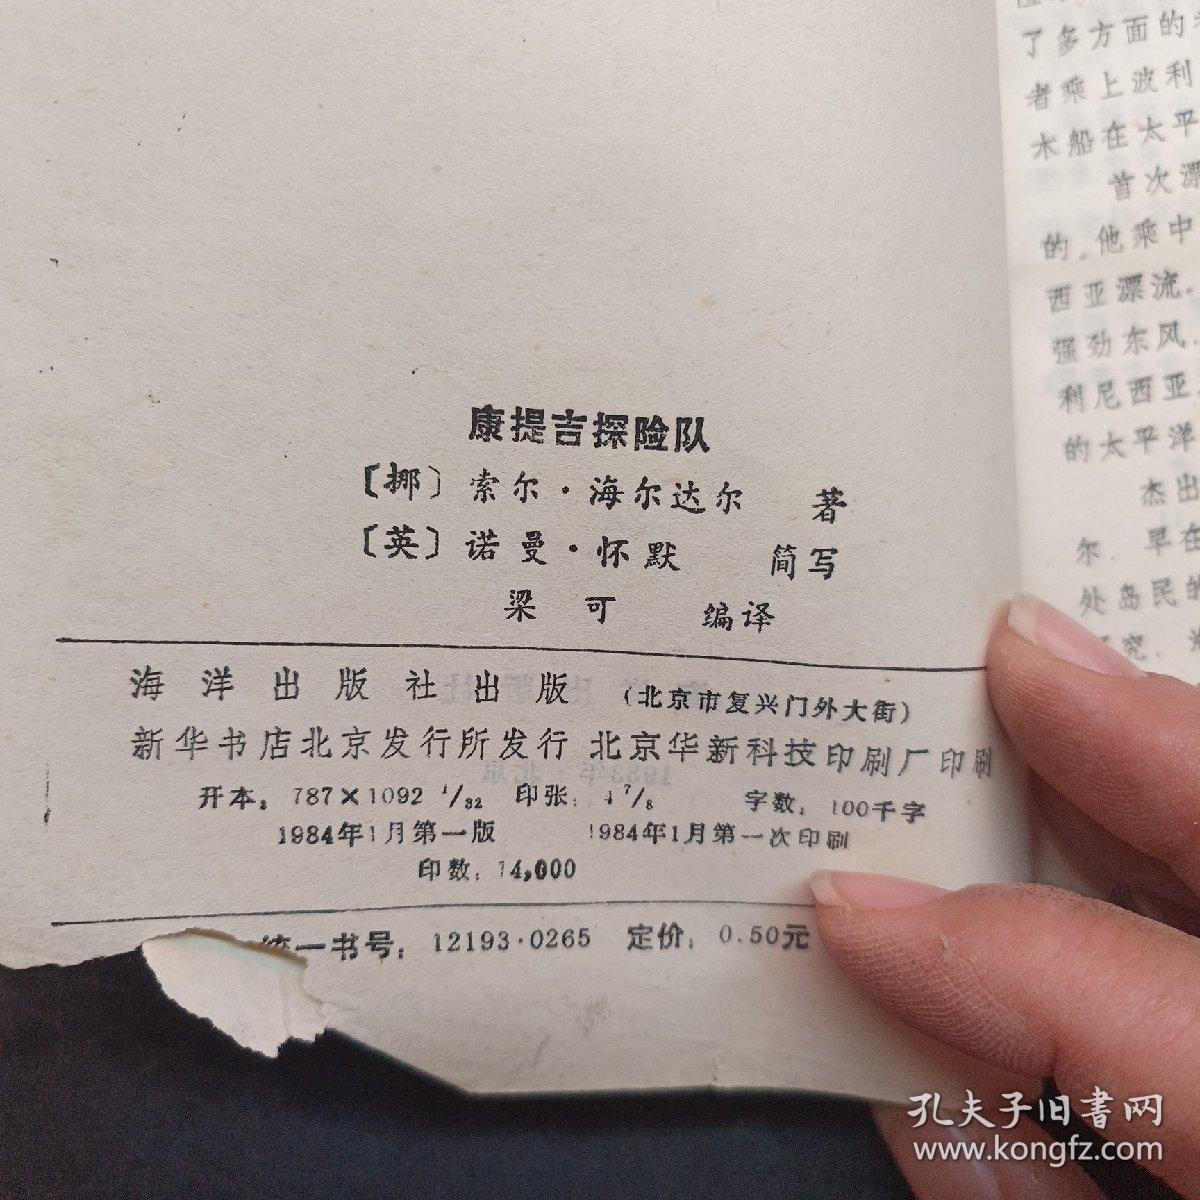 康提吉探险队
〔挪〕索尔·海尔达尔 著
〔英〕诺曼·怀默 简写
梁可 编译
海洋出版社出版（北京市复兴门外大街）
新华书店北京发行所发行 北京华新科技印刷厂印刷
开本：787×1092 1/32 印张：4 7/8 字数：100千字
1984年1月第一版 1984年1月第一次印刷
印数：14,000
统一书号：12193·0265 定价：0.50元
了多方面的
者乘上波利
木船在太平
首次漂
的.他乘中
西亚漂流.
强劲东风.
利尼西亚
的太平洋
杰出
尔.早在
处岛民的
究.
孔夫子旧书网
www.kongfz.com